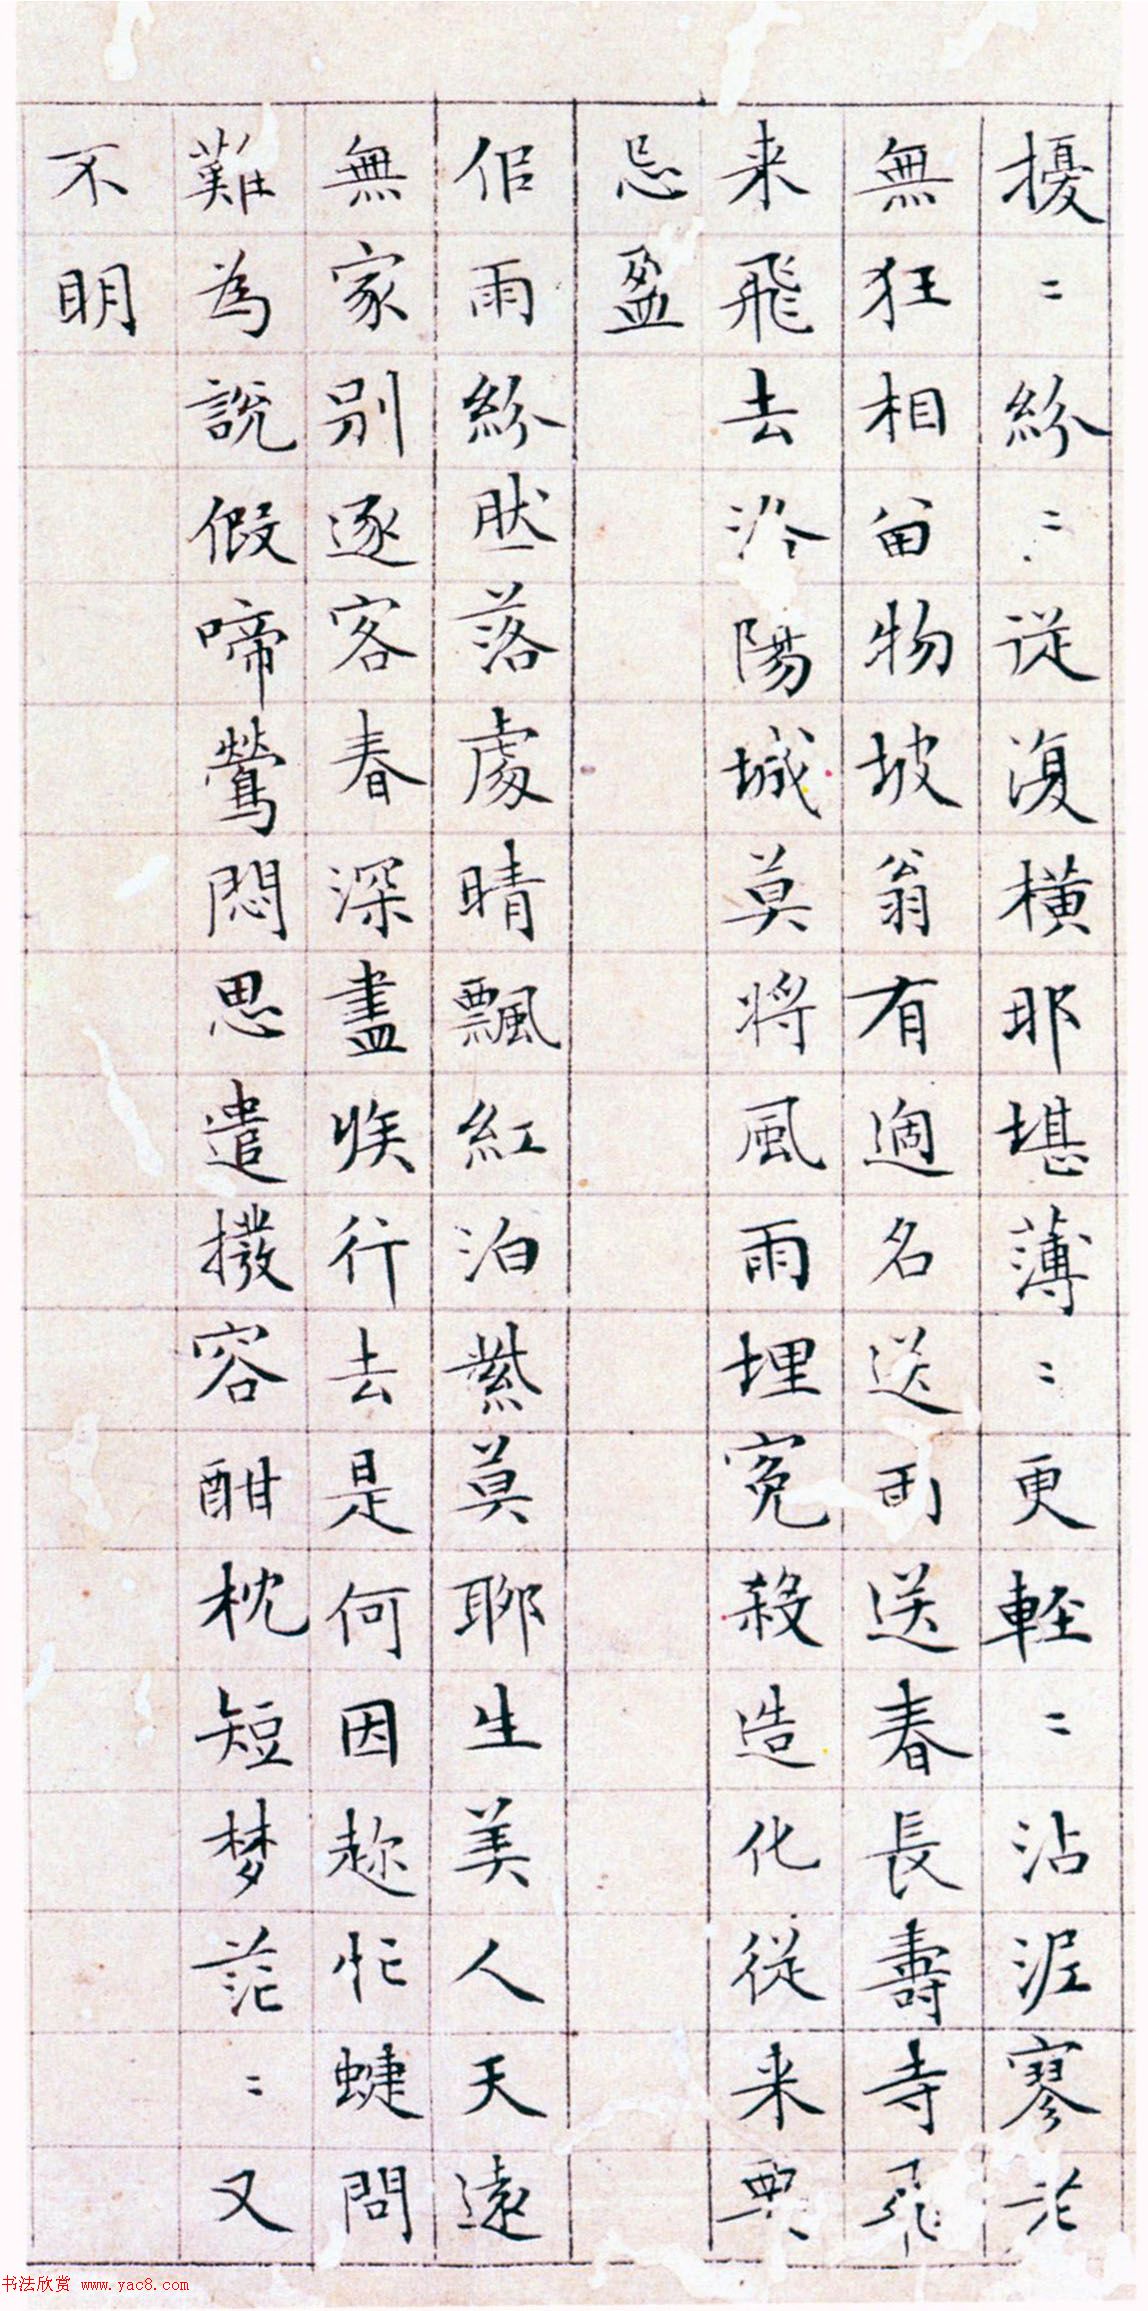 擾〻紛〻従復橫那堪薄〻更輕〻沾泥寥
無狂相留物坡翁有過名送雨送春長壽寺飛
来飛去洛陽城莫将風雨埋冤殺造化從来要
忌盈
似雨紛然落處晴飄紅泊紫莫聊生美人天遠
無家別逐客春深盡族行去是何因趂忙蜨問
難為說假啼鶯悶思遣撥容酣枕短梦茫〻又
不明
书法欣赏 www.yac8.com